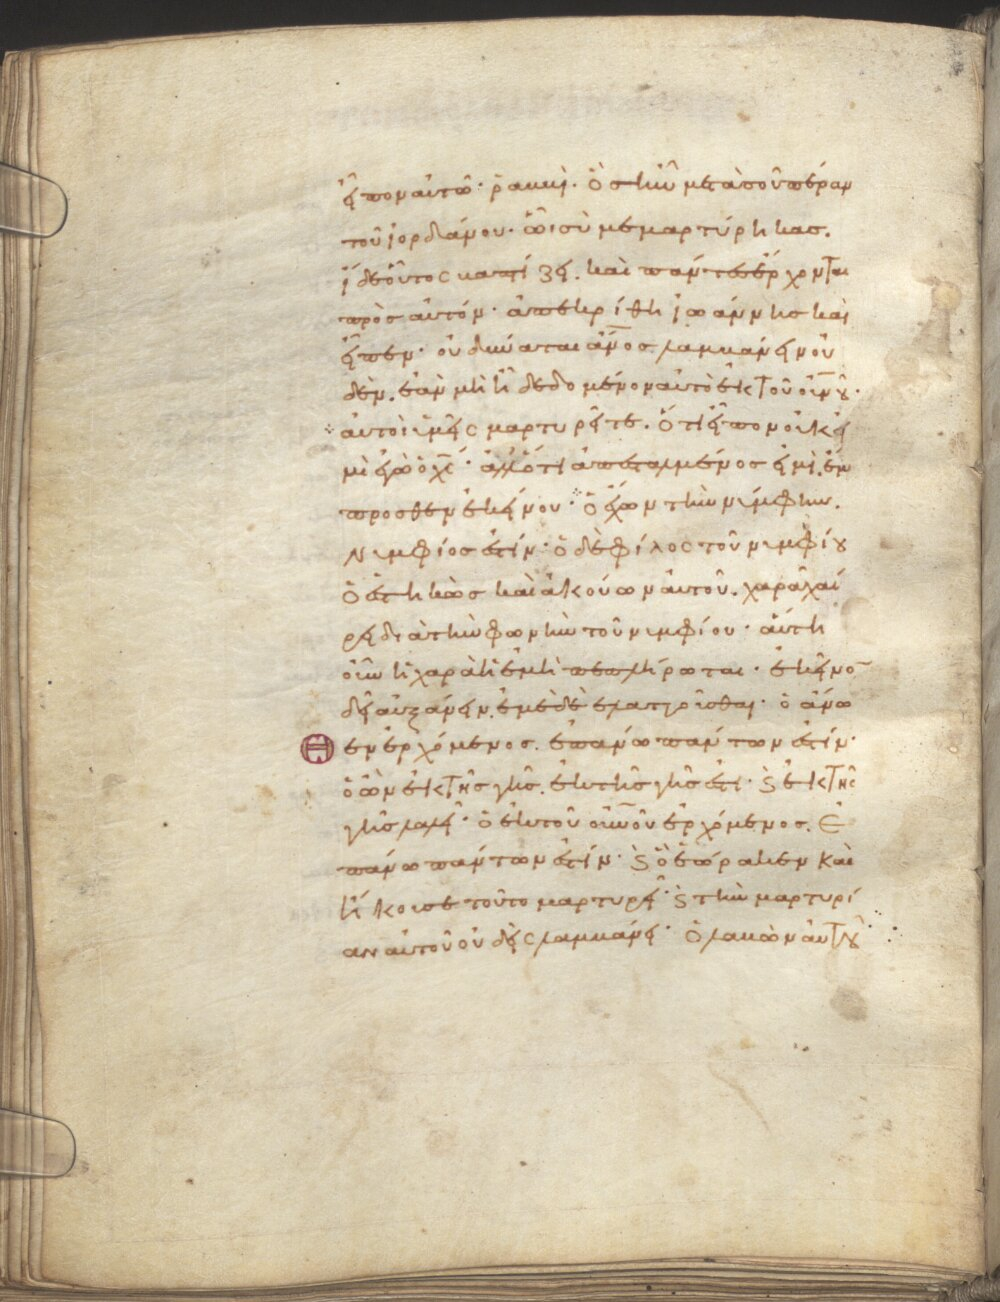 εἶπον αὐτῶ· ῥαββὶ· ὃς ἦν μετὰ σοῦ πέραν
τοῦ ἰορδάνου· ὧ σὺ μεμαρτύρηκας.
ἴδε οὗτος βαπτίζει. καὶ πάντες ἔρχονται
πρὸς αὐτόν· ἀπεκρίθη ἰωάννης καὶ
εἶπεν· οὐ δύναται ἄνος λαμβάνειν οὐ
δὲν. ἐὰν μὴ ἦ δεδομένον αὐτὸ ἐκ τοῦ οὐνου·
αὐτοὶ ὑμεῖς μαρτυρεῖτε. ὅτι εἶπον οὐκ εἰ
μὶ ἐγὼ ὁ χς· ἀλλ ὅτι ἀπεσταλμένος εἰμὶ ἔμ
προσθεν ἐκείνου· ὁ ἔχων τὴν νύμφην.
νυμφίος ἐστίν· ὁ δὲ φίλος τοῦ νυμφίου
ὁ ἑστηκὼς καὶ ἀκούων αὐτοῦ. χαρᾶ χαί
ρει διὰ τὴν φωνὴν τοῦ νυμφίου· αὕτη
οὖν ἡ χαρὰ ἡ ἐμὴ πεπλήρωται· ἐκεῖνον
δεῖ αὐξάνειν. ἐμὲ δὲ ἐλαττοῦσθαι· ὁ ἄνω
θεν ἐρχόμενος. ἐπάνω πάντων ἐστίν·
ὁ ὢν ἐκ τῆς γῆς. ἐκ τῆς γῆς ἐστι· ϗ ἐκ τῆς
γῆς λαλεῖ· ὁ ἐκ τοῦ οὐνοῦ ἐρχόμενος. ἐ
πάνω πάντων ἐστίν· ϗ ὃ ἑώρακεν καὶ
ἤκουσε τοῦτο μαρτυρεῖ· ϗ τὴν μαρτυρί
αν αὐτοῦ οὐδεὶς λαμβάνει· ὁ λαβὼν αὐτοῦ